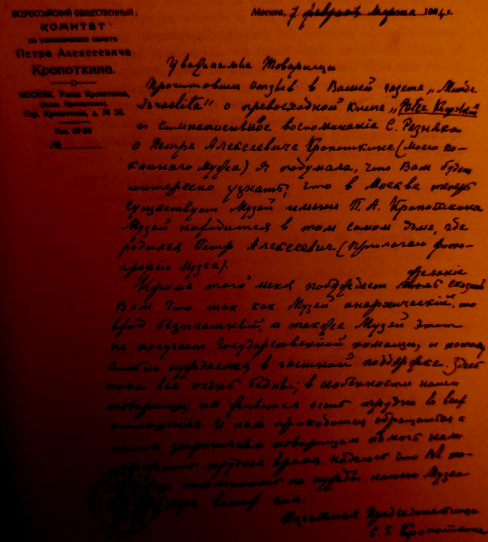 ВСЕРОССІЙСКІЙ ОБЩЕСТВЕННЫЙ
КОМИТЕТ
по увековечению памяти
Петра Алексеевича
Кропоткина.
МОСКВА, Улица Кропоткина,
Пер. Кропоткина, д. № 26.
Тел.
№
Москва, 7 марта 192 г.
Уважаемые Товарищи
Прочитавши отзыв в Вашей газете „Monde
Israelite" о превосходной книге
и симпатичное воспоминание С. Резника
о Петре Алексеевиче Кропоткине (моего по-
койного мужа) я подумала, что Вам будет
интересно узнать, что в Москве теперь
существует Музей имени П. А. Кропоткина
Музей находится в том самом доме, где
родился Петр Алексеевич (прилагаю фото-
графию Музея).
Кроме того меня побуждает желание сказать
Вам что так как Музей анархический, то
вход безплатный, а также Музей этот
не получает Государственной помощи, и потому
сильно нуждается в частной поддержке. Здесь
пока все очень бедны, в особенности наши
товарищи; им живется очень трудно во всех
отношениях и нам приходится обращаться к
нашим заграничным товарищам помочь нам
трудное время, надеясь что Вы
на нужды нашего Музея
Председательница
С. Г. Кропоткина